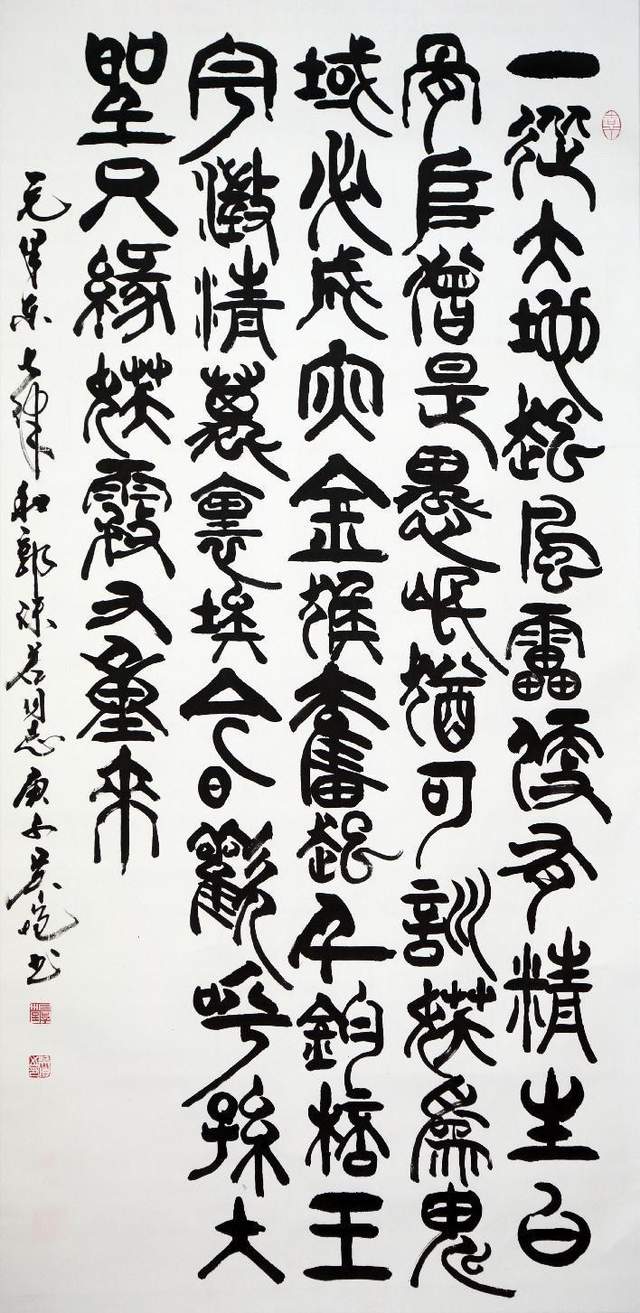 一從大地起風雷便有精生白
骨堆僧是愚氓猶可訓妖為鬼
域必成灾金猴奮起千鈞棓玉
宇澂清萬裏埃今日歡呼孫大
聖只緣妖霧又重來
毛泽东七律和郭沫若同志庚子吴书